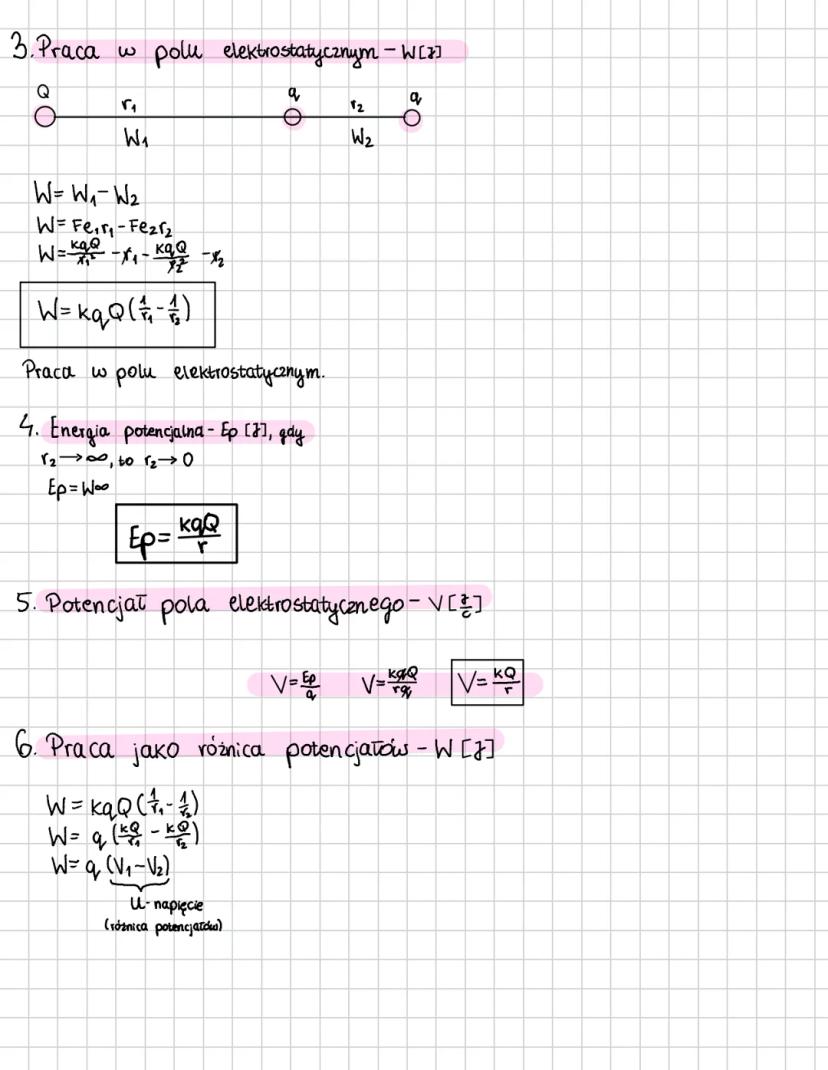 3. Praca w polu elektrostatycznym - W[J]
Q q q
r₁ r₂
W₁ W₂
W = W₁ - W₂
W = Fe₁r₁ - Fe₂r₂
W = kqQ/r₁² - r₁ - kqQ/r₂² - r₂
W = kqQ(1/r₁ - 1/r₂)
Praca w polu elektrostatycznym.
4. Energia potencjalna - Ep [J], gdy
r₂ → ∞, to r₂ → 0
Ep = W∞
Ep = kqQ/r
5. Potencjał pola elektrostatycznego - V [J/C]
V = Ep/q V = kqQ/rq V = kQ/r
6. Praca jako różnica potencjałów - W [J]
W = kqQ(1/r₁ - 1/r₂)
W = q (kQ/r₁ - kQ/r₂)
W = q (V₁ - V₂)
U - napięcie
(różnica potencjałów)